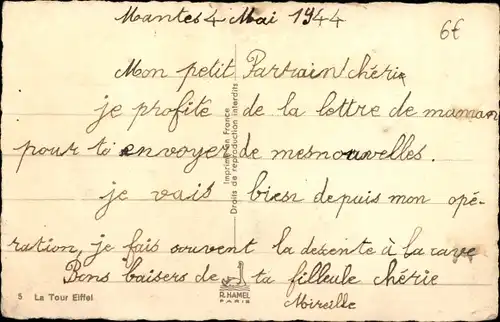 Mantes 4 Mai 1944
6€
Mon petit Parrain chérie
je profite de la lettre de maman
pour te envoyer de mesnouvelles.
je vais bien depuis mon opé-
ration, je fais souvent la desente à la cave
Bons baisers de ta filleule chérie
Mireille
Imprimé en France
Droits de reproduction interdits
5 La Tour Eiffel
R. HAMEL
PARIS